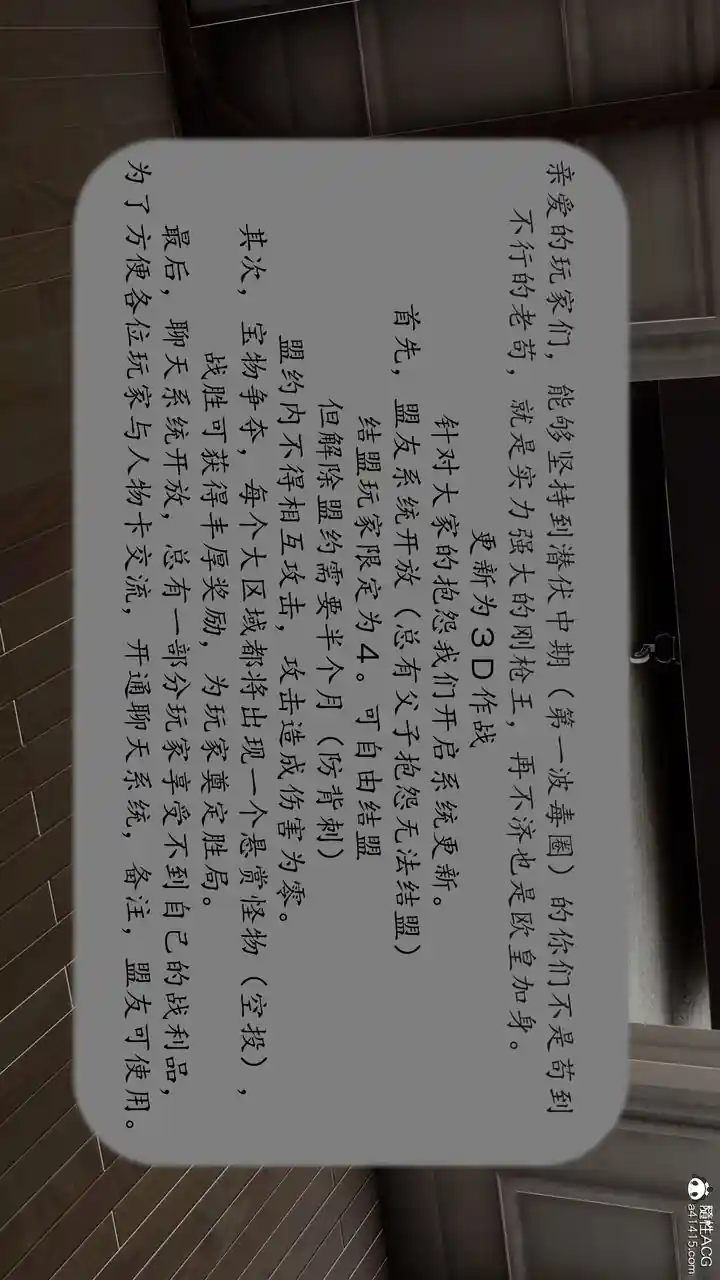 亲爱的玩家们，能够坚持到潜伏中期（第一波毒圈）的你们不是苟到
不行的老苟，就是实力强大的刚枪王，再不济也是欧皇加身。
更新为3D作战
针对大家的抱怨我们开启系统更新。
首先，盟友系统开放（总有父子抱怨无法结盟）
结盟玩家限定为4。可自由结盟
但解除盟约需要半个月（防背刺）
盟约内不得相互攻击，攻击造成伤害为零。
其次，宝物争夺，每个大区域都将出现一个悬赏怪物（空投），
战胜可获得丰厚奖励，为玩家奠定胜局。
最后，聊天系统开放，总有一部分玩家享受不到自己的战利品，
为了方便各位玩家与人物卡交流，开通聊天系统，备注，盟友可使用。
隨性ACG
a41415.com